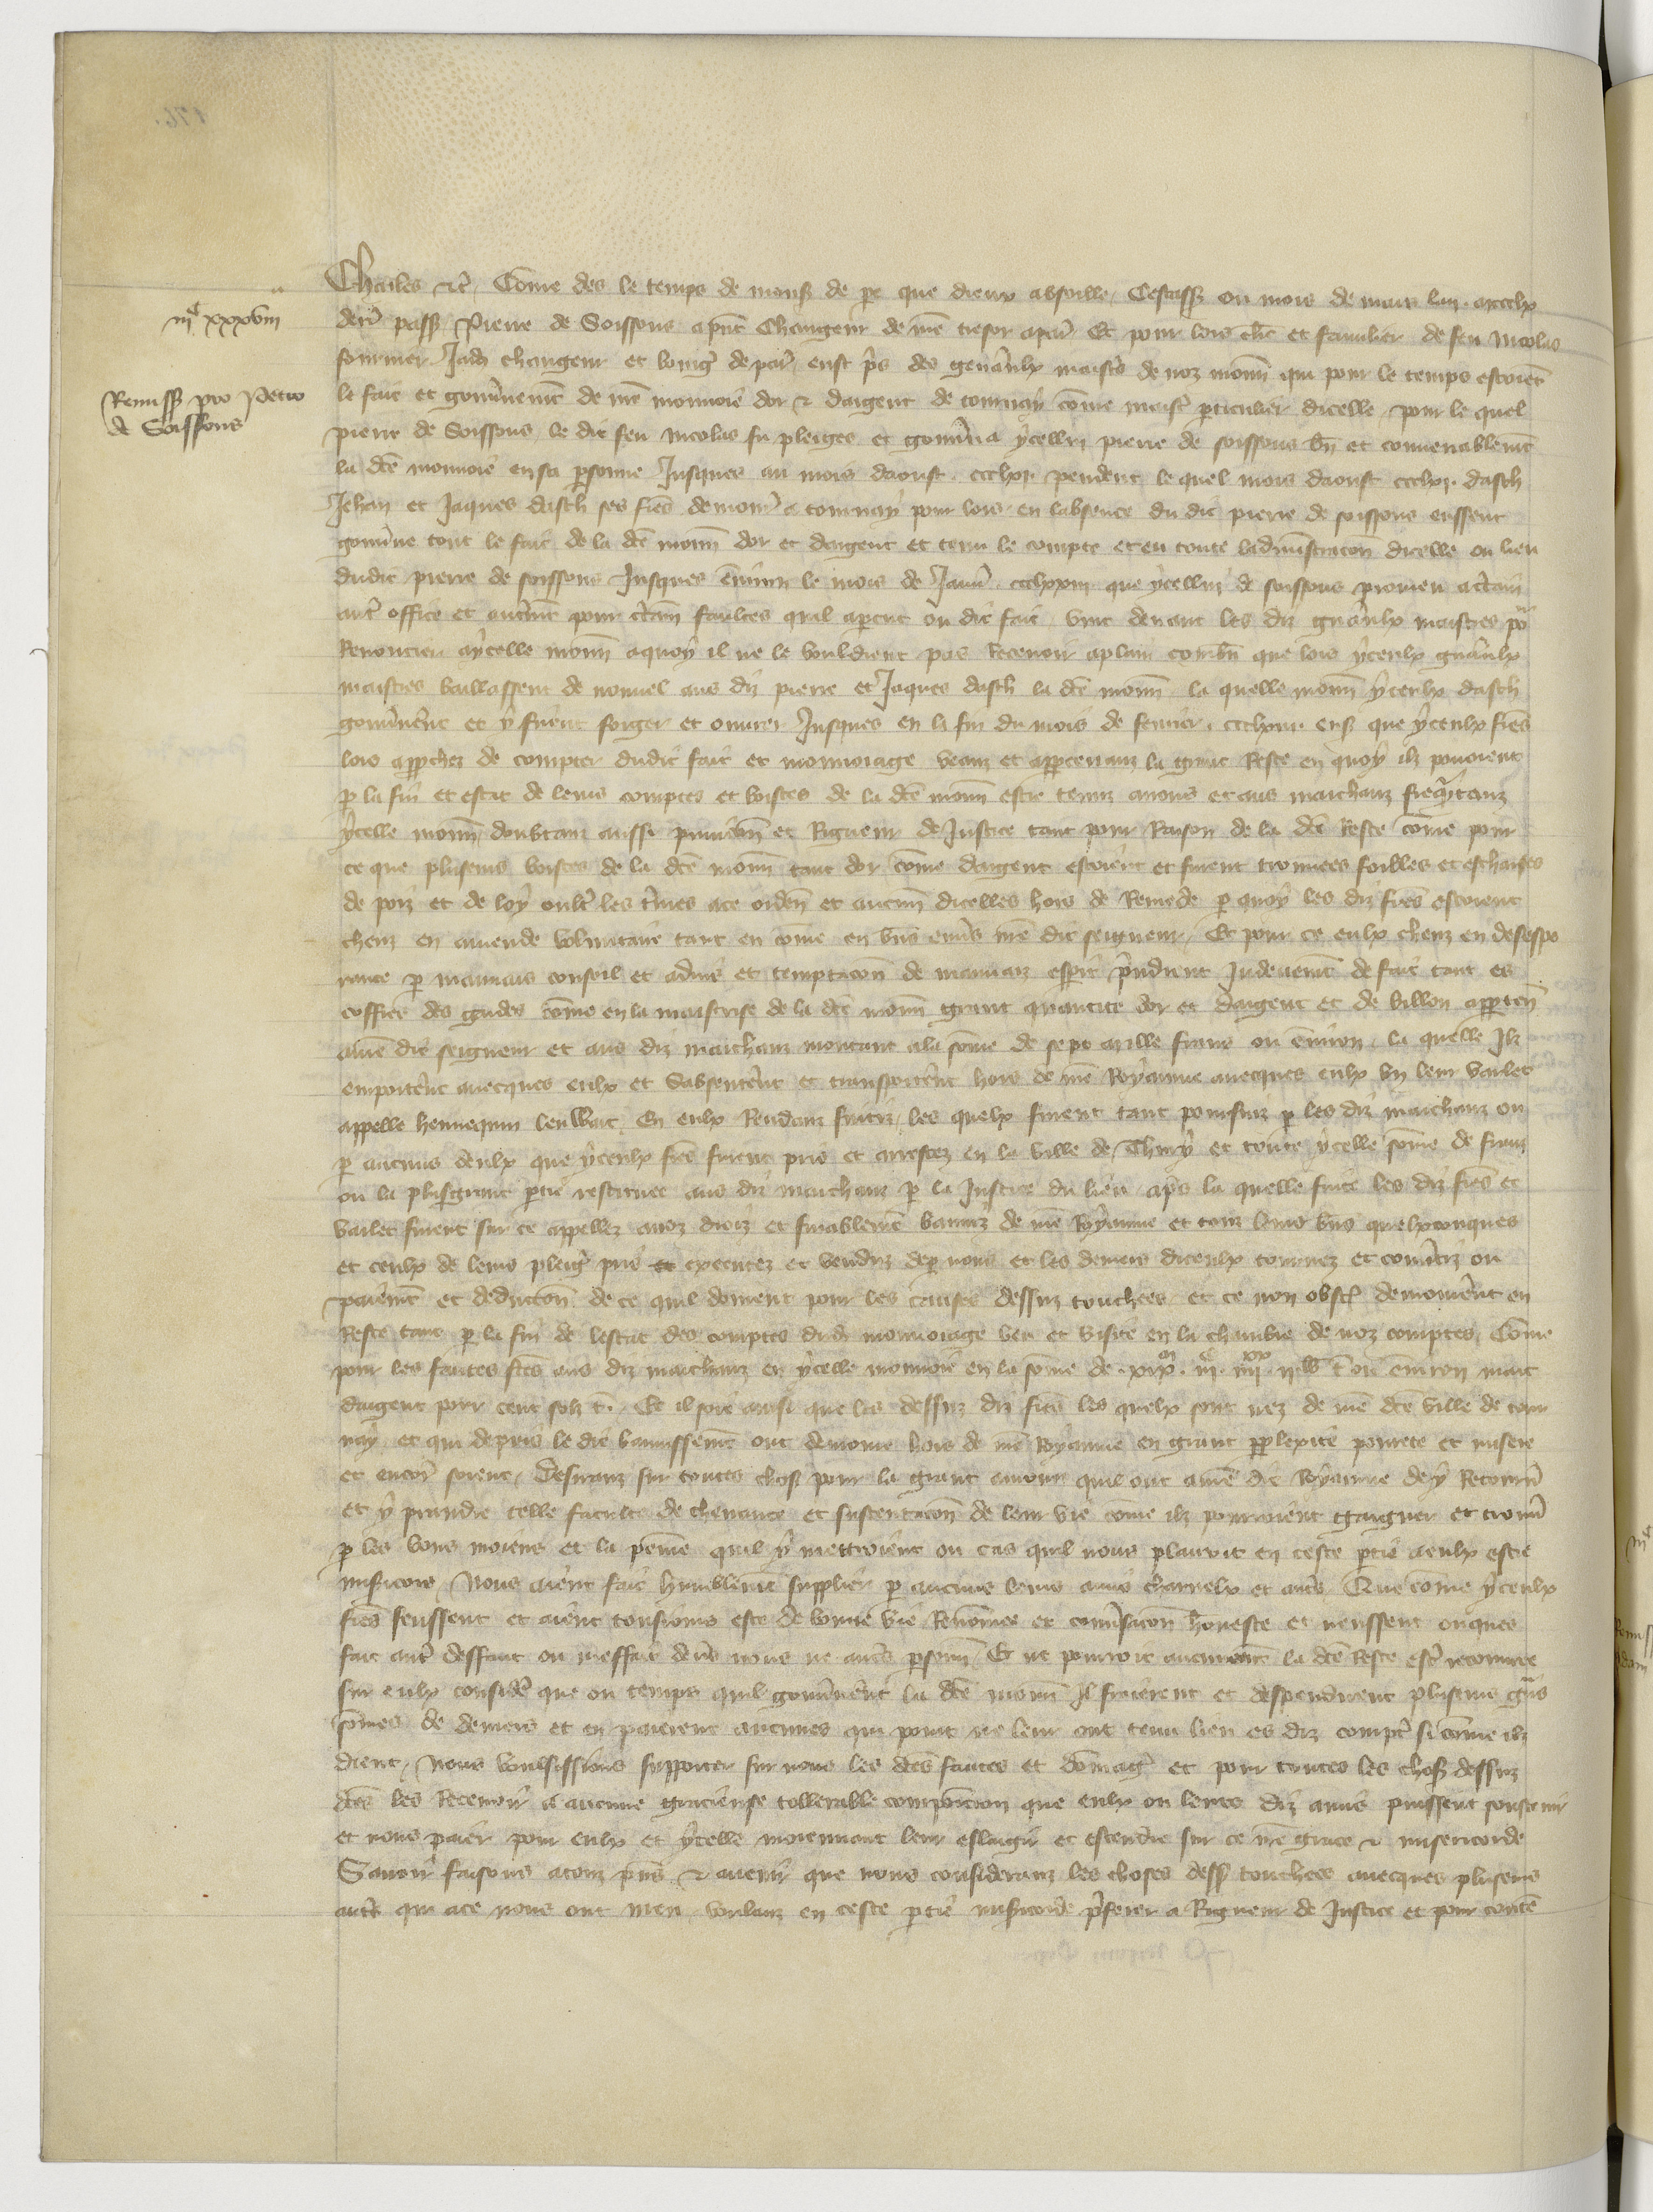 Charles etc. Come des le temps de monss de pe que dieux absoille Cestass ou mois de mars lan mccclx
derr passe Pierre de Soissons apnt Changeur de nre tresor apar Et pour lors clerc et familier de feu Nicolas
fournier Jadis changeur et bourg de par eust pris des gnaulx maistres de noz monn qui pour le temps estoient
le fait et gouvnement de nre monnoie dor et dargent de tournay come maistre particulier dicelle pour le quel
pierre de Soissons le dit feu Nicolas fu pleiges et gouvna ycellui pierre de soissons bn et convenablemt
la dce monnoie en sa psonne Jusques au mois daoust pendent le quel mois daoust dasch
Jehan et Jaques dasch ses fres demour a tournay pour lors en labsence du dit pierre de soissons eussent
gouvne tout le fait de la dce monn dor et dargent et tenu le compte et eu toute ladministracon dicelle ou lieu
dudit pierre de soissons Jusques environ le mois de Janv que ycellui de soissons promeu actain
autre office et autremt pour ctain faultes quil apceut ou dit fait vint devant les diz gnaulx maistres po
Renoncier aycelle monn aquoy il ne le vouldrent pas Recevoir aplain combn que lors yceulx gnaulx
maistres baillassent de nouvel aus diz pierre et Jaques dasch la dce monn la quelle monn yceulx dasch
gouvnerent et y firent forger et ouvrer Jusques en la fin du mois de fevrier que yceulx fres
lors approchez de compter dudit fait et monnoiage veanz et appcevanz la grant Reste en quoy ilz pouoient
p la fin et estat de leurs comptes et boistes de la dce monn estre tenuz anous et aus marchanz frequentanz
ycelle monn doubtanz aussi et Rigueur de Justice tant pour Raison de la dce Reste come pour
ce que plusieurs boistes de la dce monn tant dor come dargent estoient et furent trouvees foibles et escharses
de pois et de loy oultre les tmes ace orden et aucun dicelles hors de Remede p quoy les diz fres estoient
cheuz en amende volontaire tant en come en bns envs nre dit seigneur Et pour ce eulx cheuz en desespe
rance p mauvais conseil et advis et temptacon de mauvaiz esprit prindrent Induement de fait tant es
coffres des gardes come en la maistrise de la dce monn grant quantite dor et dargent et de billon apptenn
anre dit seigneur et aus diz marchanz montant ala some de sept mille frans ou environ la quelle Ilz
emporterent avecques eulx et Sabsenterent et transporterent hors de nre Royaume avecques eulx un leur varlet
appelle hennequin En eulx Rendanz fuitiz les quelx furent tant poursuiz p les diz marchanz ou
p aucuns deulx que yceulx fres furent pris et arrestez en la ville de Thury et toute ycelle some de frans
ou la plusgrant ptie restituee aus diz marchanz p la Justice du lieu aps la quelle fuite les diz fres et
varlet furent sur ce appellez anoz droiz et finablemt banniz de nre Royaume et touz leurs bns quelxconques
et ceulx de leurs pleig pris et executez et venduz depar nous et les deniers diceulx tournez et convtiz ou
paiemt et deducton de ce quil devoient pour les causes dessus touchees et ce non obst demourerent en
Reste tant p la fin de lestat des comptes dudi monnoiage veu et visite en la chambre de noz comptes Come
pour les fautes fces aus diz marchanz en ycelle monnoie en la some de ou environ marc
dargent pour cent solz t. Et il soit ainsi que les dessus diz fres les quelx sont nez de nre dce ville de tour
nay et qui depuis le dit bannissemt ont demoure hors de nre Royaume en grant pplexite povrete et misere
et encor soient desiranz sur toutes choss pour la grant amour quil ont anre dit Royaume de y Retourn
et y prandre telle faculte de chevance et sustentacon de leur vie come ilz pourroient gaigner et trouv
p les bons moiens et la peine quil y mettroient ou cas quil nous plairoit en ceste ptie aeulx estre
misericors Nous aient fait humblemt supplier p aucuns leurs amis charnelx et autrs Que come yceulx
fres feussent et aient tousjours este de bonne vie Renomee et convsacon honeste et neussent onques
fait autre deffaut ou meffait devs nous ne autrs psonn Et ne pourroit aucunemt la dce Reste estre recouvree
sur eulx consider que ou temps quil gouvnerent la dce monn Il fraierent et despendirent plusieurs gns
somes de deniers et en paierent aucunes qui point ne leur ont tenu lieu es diz compt si come ilz
dient Nous voulsissions supporter sur nous les dces fautes et domag et pour toutes les choss dessus
dces les Recevoir a aucune gracieuse tollerable composicion que eulx ou leurs diz amis puissent soustenir
et nous paier pour eulx et ycelle moiennant leur eslargir et estendre sur ce nre grace et misericorde
Savoir faisons atouz pns et avenir que nous consideranz les choses dess touchees avecques plusieurs
autrs qui ace nous ont meu voulanz en ceste ptie misericorde preferer a Rigueur de Justice et pour contem
iijc xxxviii
Remiss pro Petro
de Soissons